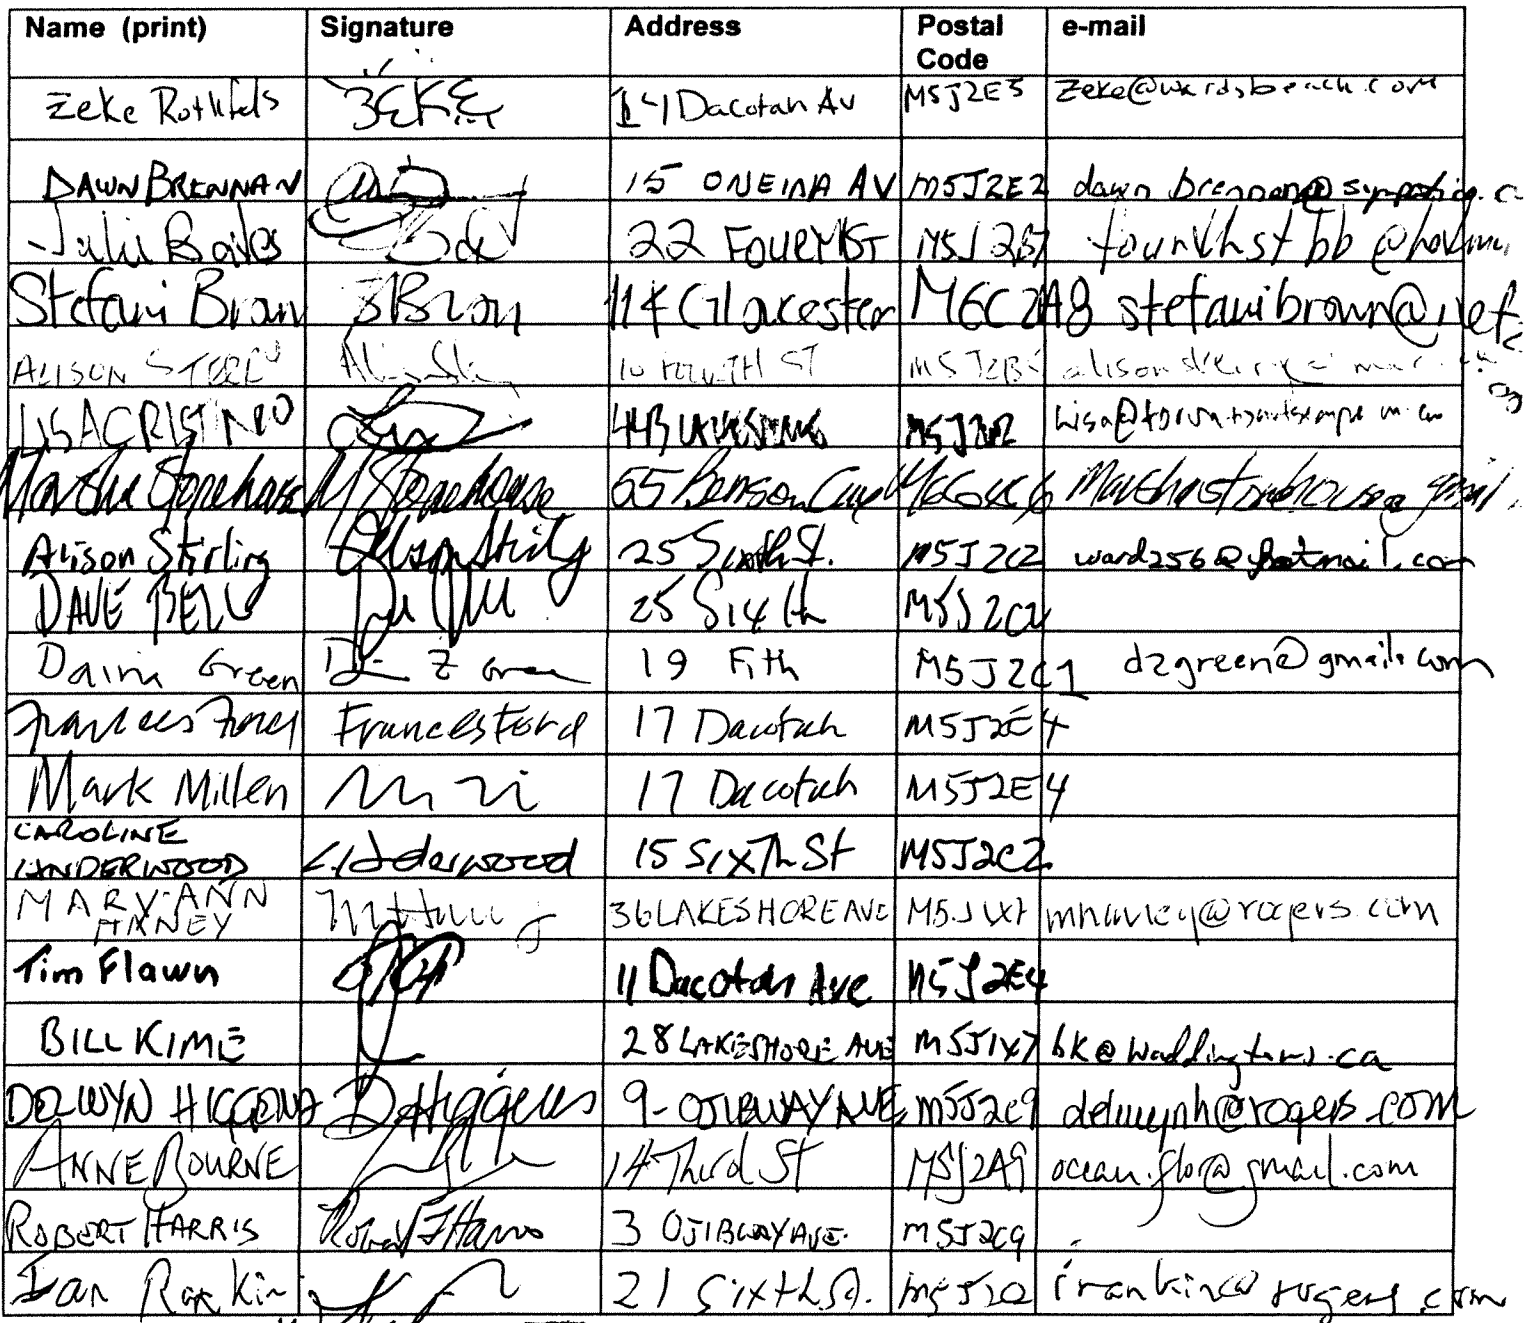 Name (print) Signature Address Postal Code e-mail
Zeke Rothfels ZEKE 14 Dacotah Av M5J2E3 zeke@wardsbeach.com
DAWN BRENNAN 15 ONEIDA AV M5J2E2 dawn brennan@sympatico.c
Julie 22 FOURTH ST M5J 2B7 fourthstbb@hotmai
Stefani Brown SBrown 114 Glocester M6C2A8 stefanibrown@net
ALISON 10 FOURTH ST M5J2B
LISA CRISTINZO
Martha Stonehouse M Stonehouse 65 Benson marthastonehouse@gmail.
Alison Stirling Alison Stirling 25 Sixth St. M5J 2C2 ward256@hotmail.com
DAVE BELL 25 Sixth M5J 2C2
Green Green 19 Fith M5J2C1 dzgreen@gmail.com
Frances Ford Frances Ford 17 Dacotah M5J2E4
Mark Millen 17 Dacotah M5J2E4
CAROLINE
UNDERWOOD Underwood 15 Sixth St M5J2C2
MARY-ANN
HANEY 36 LAKESHORE AVE M5J 1X7 mhaney@rogers.com
Tim Flawn 11 Dacotah Ave M5J2E4
BILL KIME 28 LAKESHORE AVE M5J1X7 bk@waddingtons.ca
DELWYN HIGGENS D Higgens 9-OJIBWAY AVE M5J2C9 delwynh@rogers.com
ANNE BOURNE 14 Third St M5J2A9 ocean.flo@gmail.com
ROBERT HARRIS Robert Harris 3 OJIBWAY AVE. M5J2C9
Ian Rankin 21 Sixth St. irankin@rogers.com